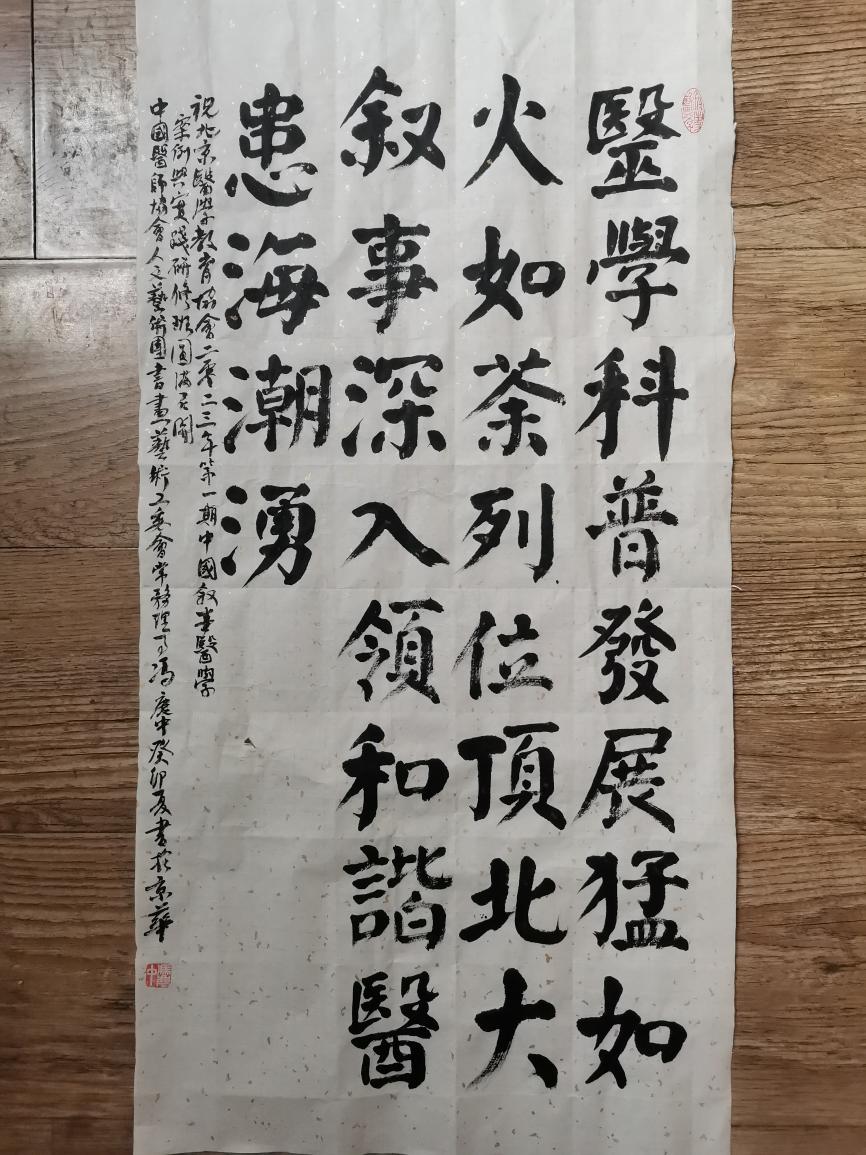 毉學科普發展猛如
火如荼列位頂北大
叙事深入領和諧醫
患海潮湧
祝北京醫學教育協會二零二三年第一期中國叙事醫學
案例與實踐研修班圓滿召開
中國醫師協會人文藝術團書畫藝術工委會常務理事馮庚中癸卯夏書於京華